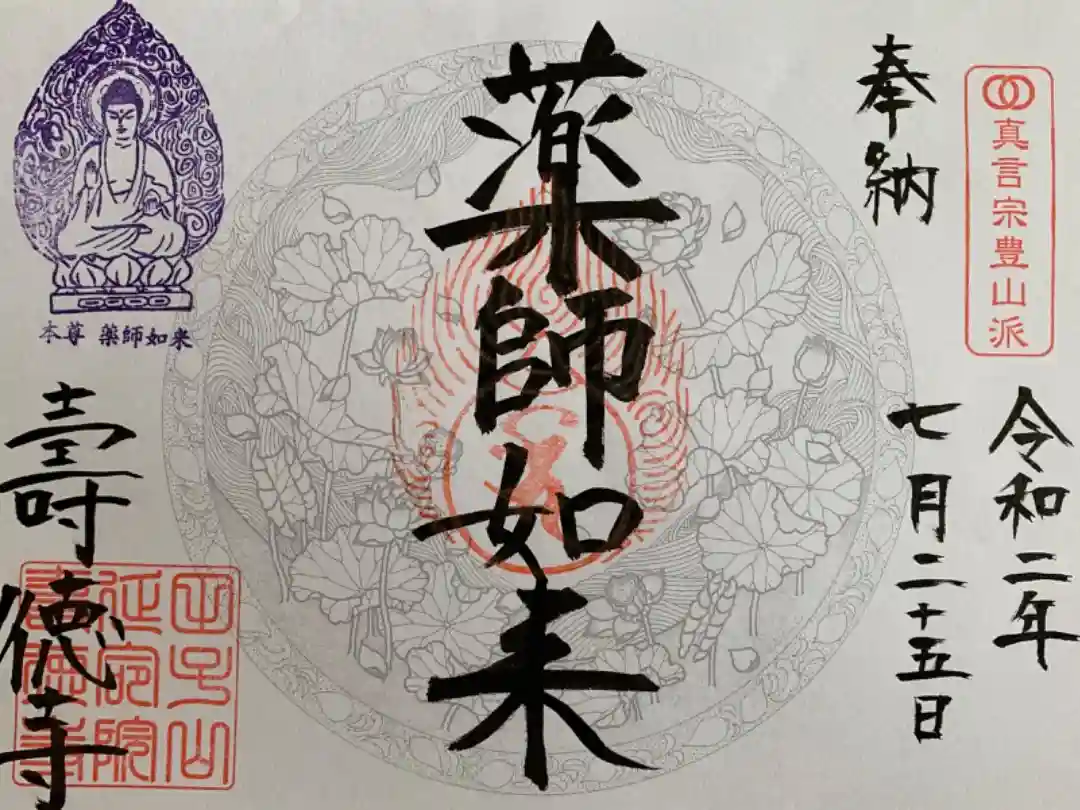 真言宗豊山派
奉納
令和二年
七月二十五日
薬師如来
本尊 薬師如来
壽徳寺